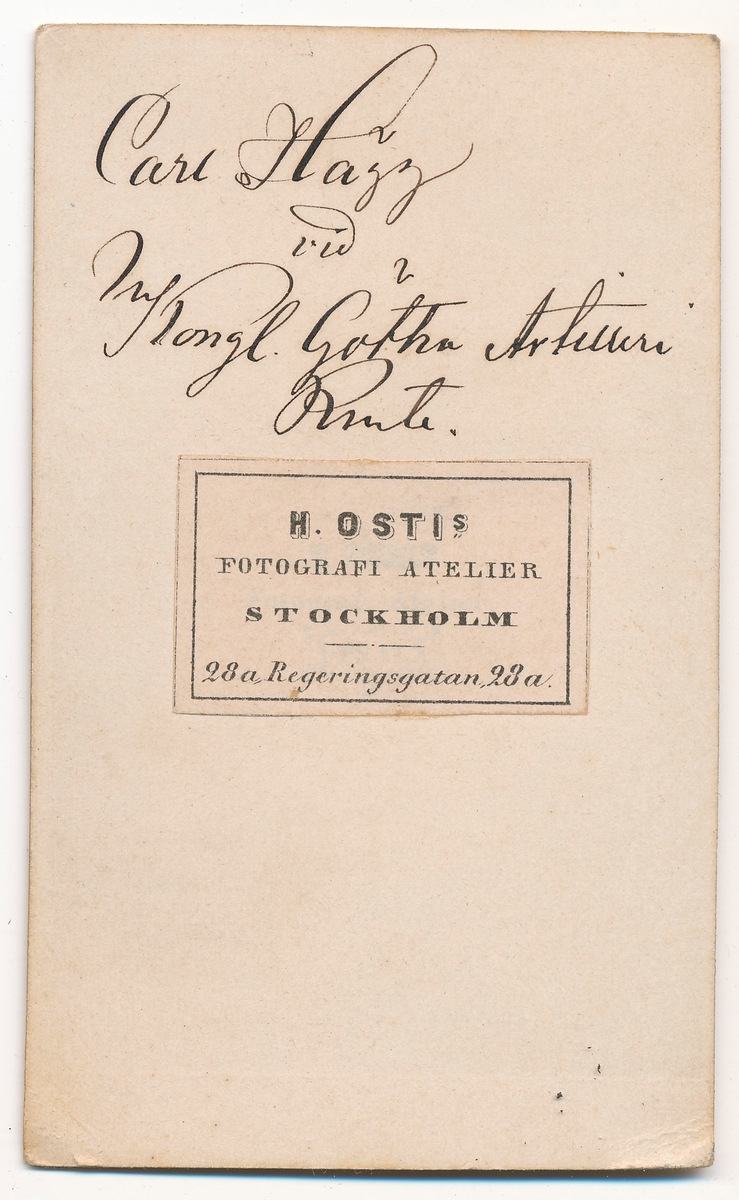 Carl Hägg
vid
Kongl. Götha Artilleri
Rmte.
H. OSTIS
FOTOGRAFI ATELIER
STOCKHOLM
28a, Regeringsgatan, 28a.